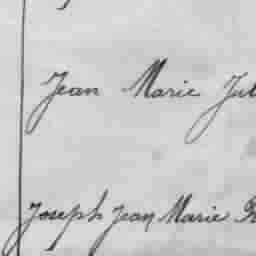 Jean Marie Jul
Joseph Jean Marie R